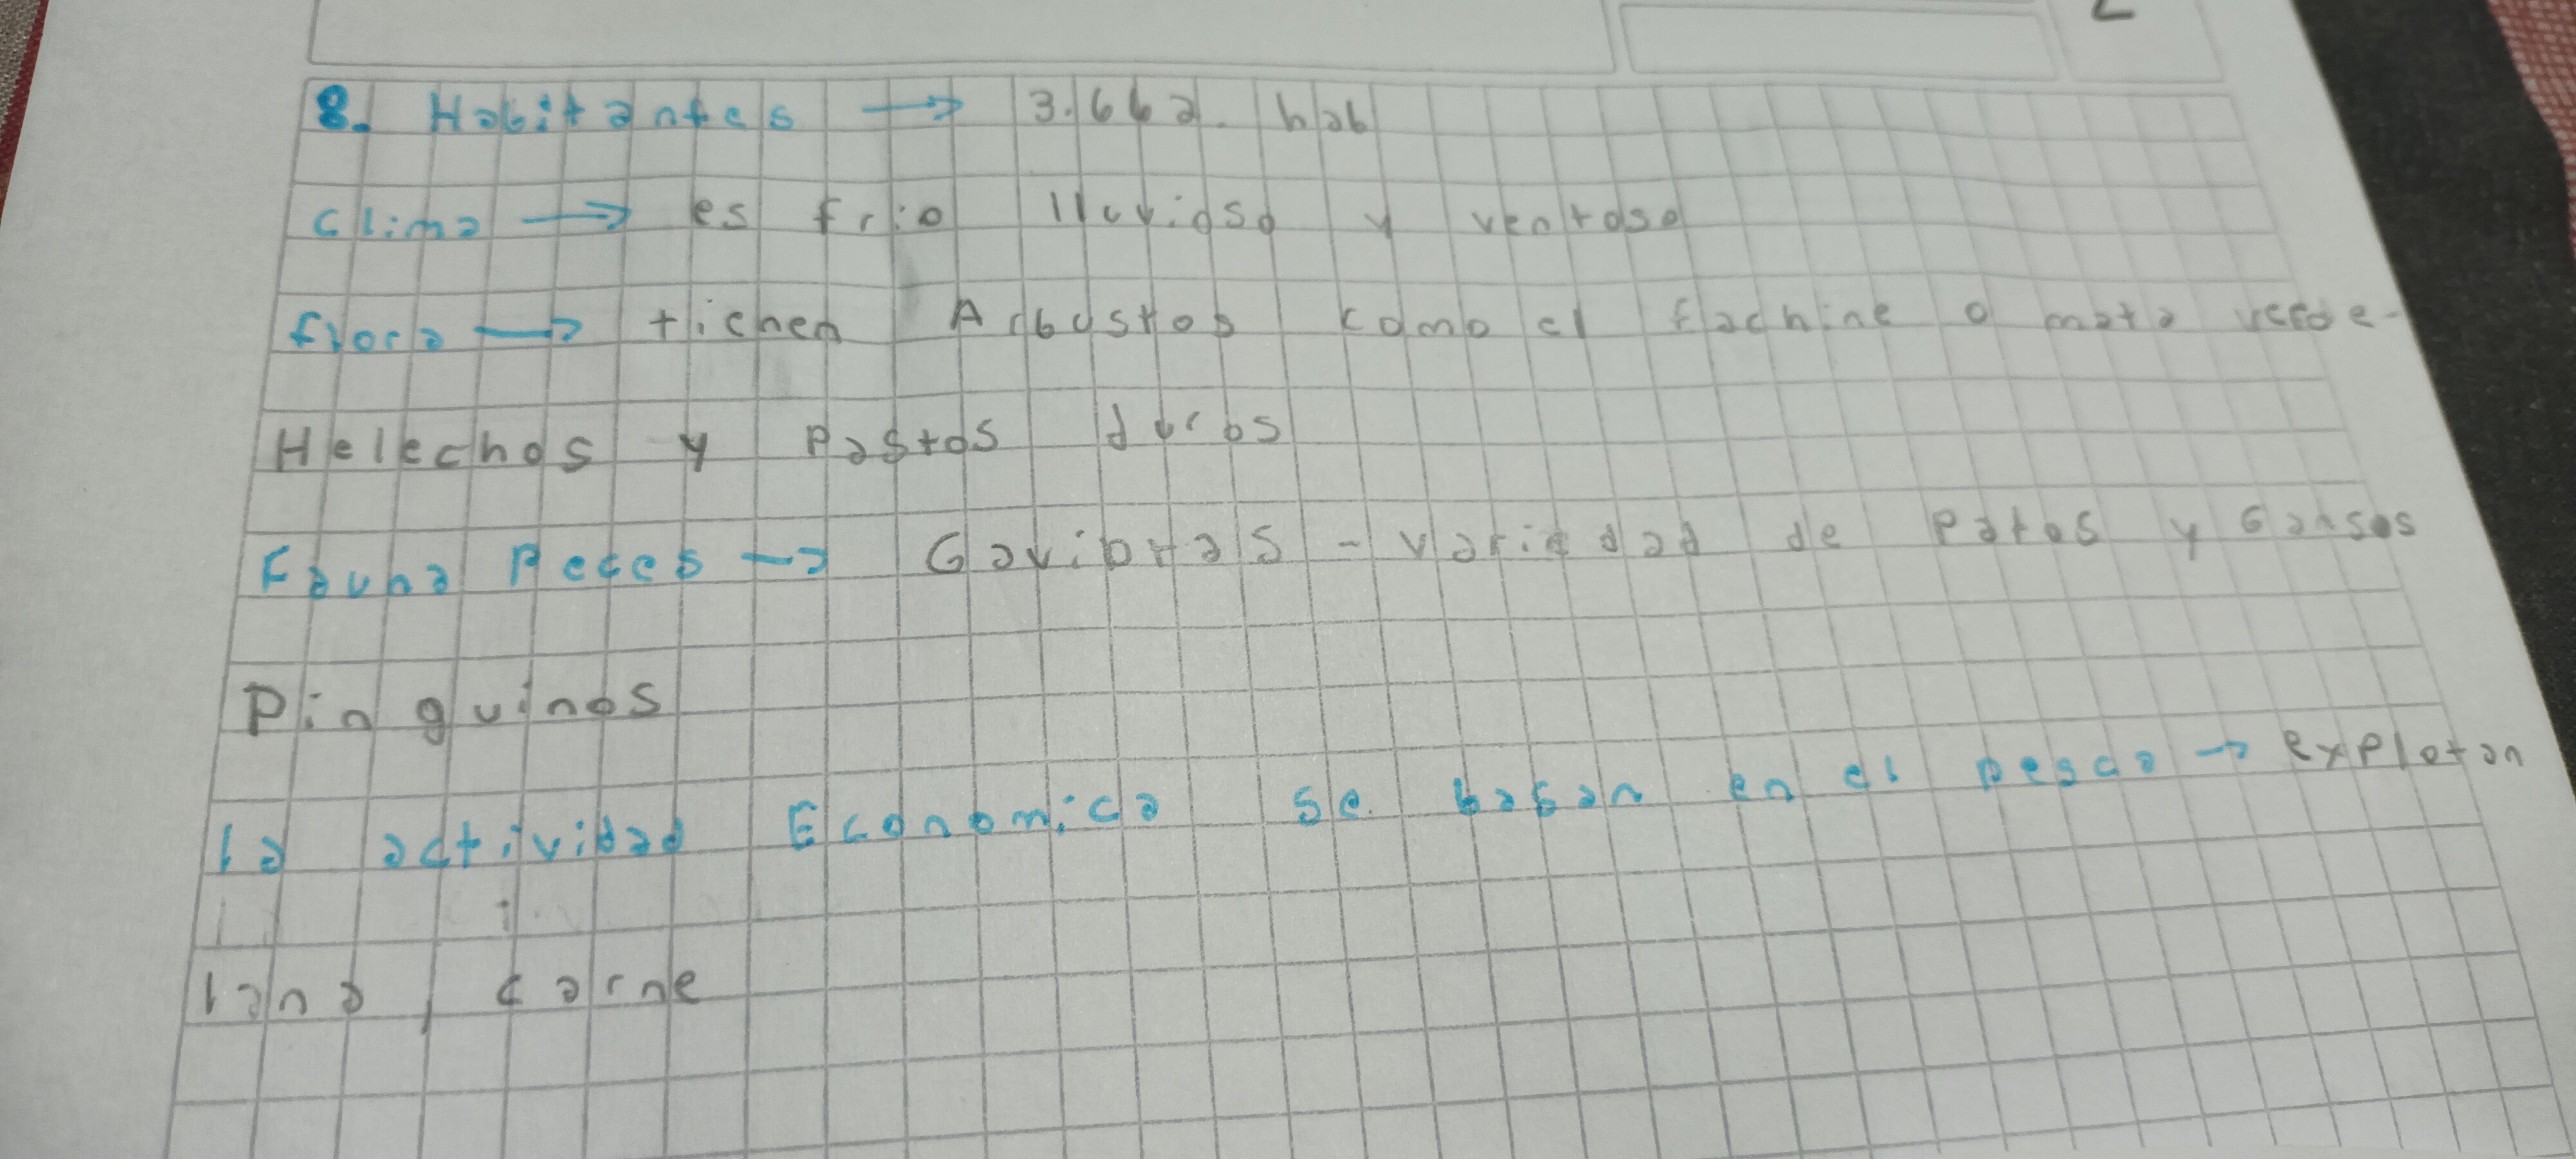 8. Habitantes → 3.662. hab
Clima → es frio lluvioso y ventoso
flora → tienen Arbustos como el fachine o mata verde-
Helechos y Pastos duros
Fauna Peces → Gaviotas - variedad de Patos y Gansos
Pinguinos
la actividad Economica se basan en el pesca → explotan
lana, carne